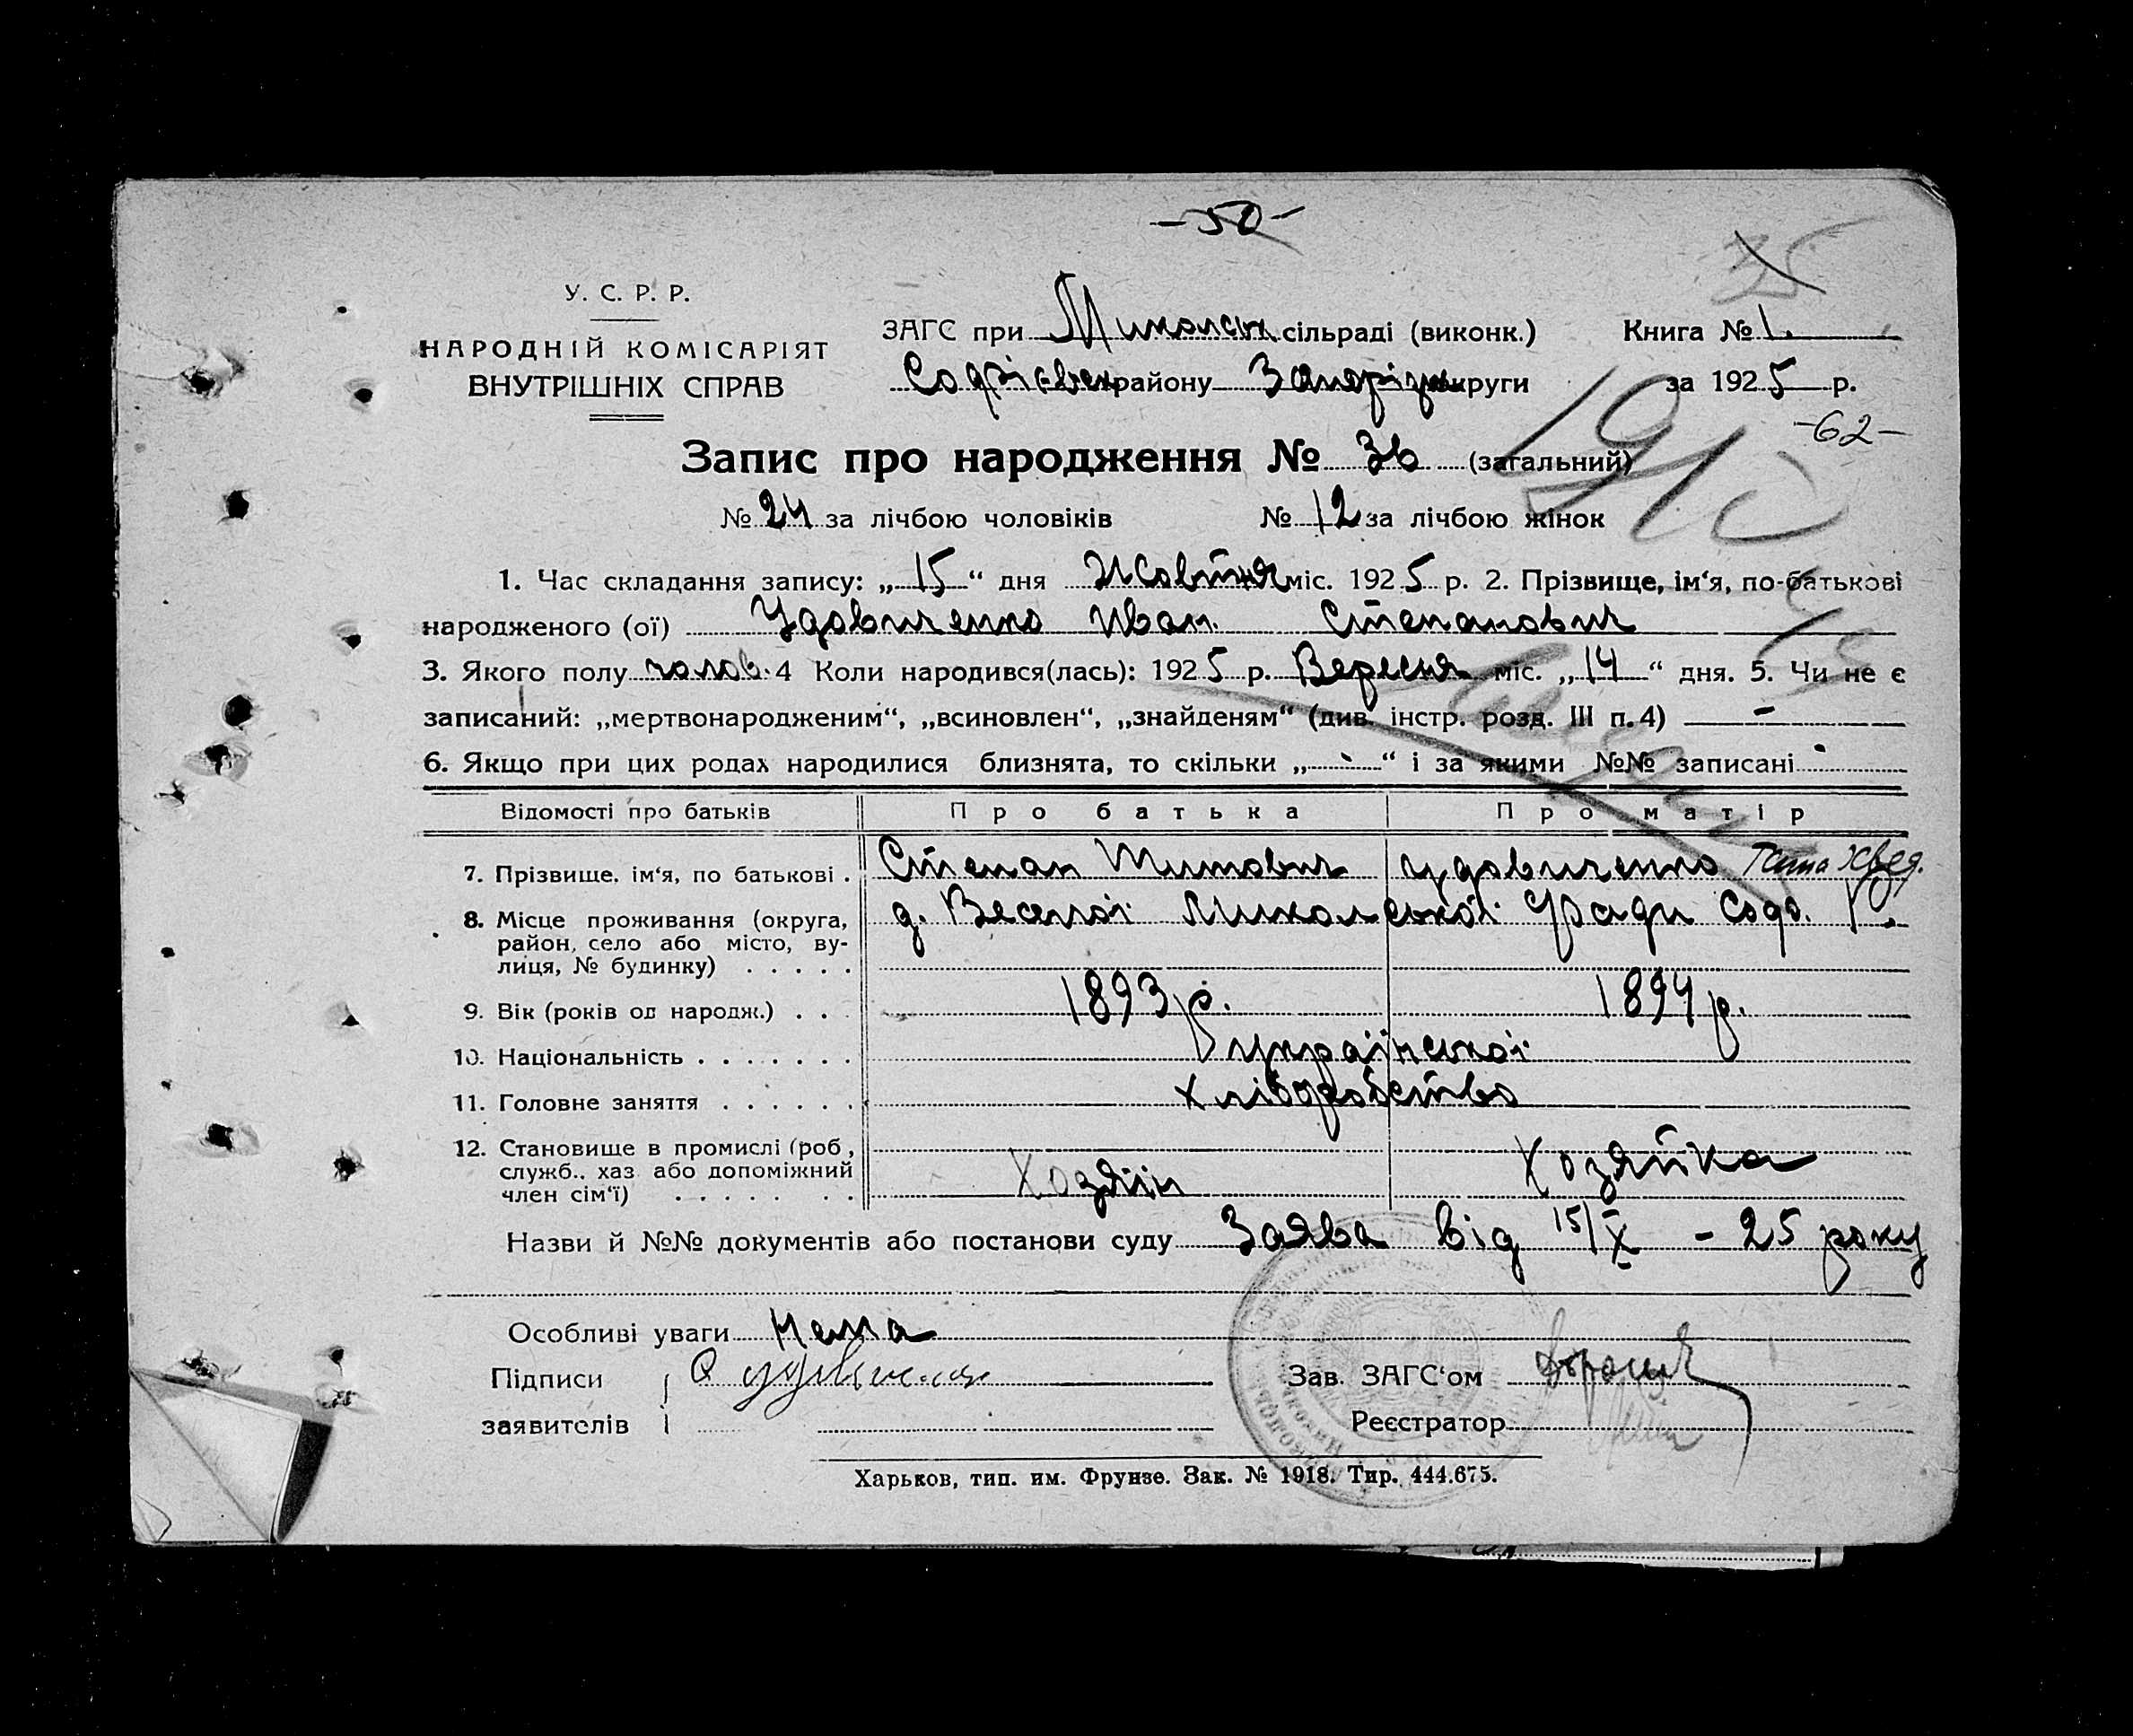 -50-
У. С. Р. Р.
НАРОДНІЙ КОМІСАРІЯТ
ВНУТРІШНІХ СПРАВ
ЗАГС при Микольськ сільраді (виконк.) Книга № 1.
Софієвськ району Запоріз округи за 1925 р.
-62-
Запис про народження № 36 (загальний)
№ 24 за лічбою чоловіків № 12 за лічбою жінок
1. Час складання запису: „15“ дня Жовтня міс. 1925 р. 2. Прізвище, ім‘я, по-батькові
народженого (ої) Удовиченко Иван Степанович
3. Якого полу чолов. 4 Коли народився(лась): 1925 р. Вересня міс. „14“ дня. 5. Чи не є
записаний: „мертвонародженим“, „всиновлен“, „знайденям“ (див. інстр. розд. III п. 4) -
6. Якщо при цих родах народилися близнята, то скільки „-“ і за якими №№ записані
Відомості про батьків Про батька Про матір
7. Прізвище, ім‘я, по батькові . Степан Титович удовиченко Хвед.
8. Місце проживання (округа, д. Веселої Микольської Сради Соф. Р.
район, село або місто, ву-
лиця, № будинку) . . . . .
9. Вік (років од народж.) . . . 1893 р. 1894 р.
10. Національність . . . . . . . української
11. Головне заняття . . . . . . хліборобство
12. Становище в промислі (роб,
служб., хаз або допоміжний Хозяїн Хозяйка
член сім‘ї) . . . . . . .
Назви й №№ документів або постанови суду Заява від 15/X - 25 року
Особливі уваги Нема
Підписи Зав. ЗАГС‘ом
заявителів Реєстратор
Харьков, тип. им. Фрунзе. Зак. № 1918. Тир. 444.675.